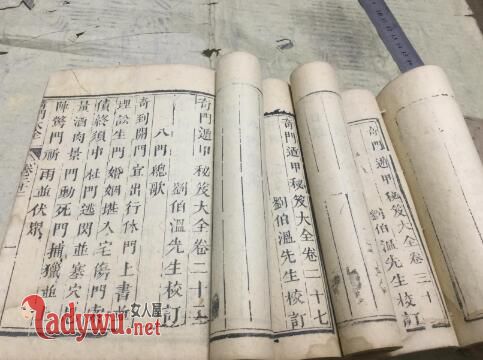 奇門遁甲秘笈大全卷三十
劉伯溫先生校訂
奇門遁甲秘笈大全卷二十七
劉伯溫先生校訂
奇門遁甲秘笈大全卷二十
劉伯溫先生校訂
八門總歌
奇到開門宜出行休門上書
理訟生門婚姻堪入宅傷門
債終須中杜門逃閃並墓穴
量酒肉景門動死門捕獵並
陣驚門祈雨並伏
奇門大全
女人屋
ladywu.net